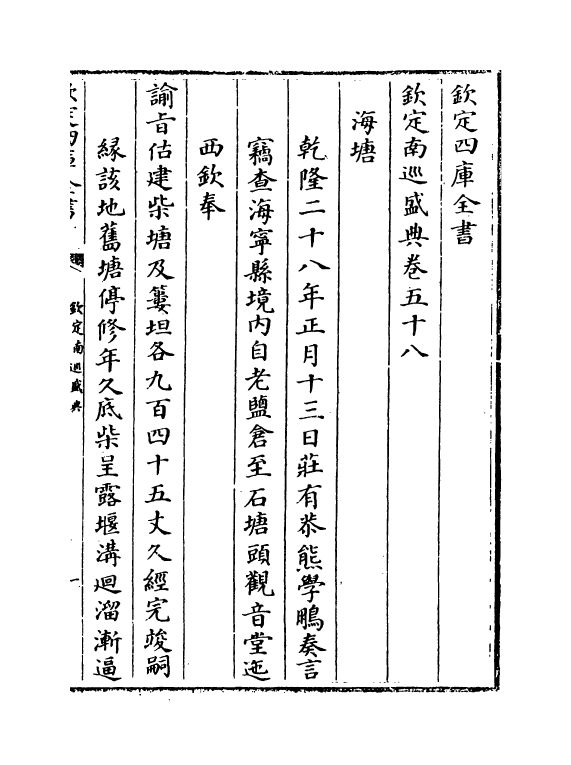 欽定四庫全書
欽定南巡盛典卷五十八
海塘
乾隆二十八年正月十三日莊有恭熊學鵬奏言
竊查海寧縣境内自老鹽倉至石塘頭觀音堂迤
西欽奉
諭旨估建柴塘及簍坦各九百四十五丈久經完竣嗣
緣該地舊塘停修年久底柴呈露堰溝迴溜漸逼
欽定四庫全書
欽定南巡盛典
一